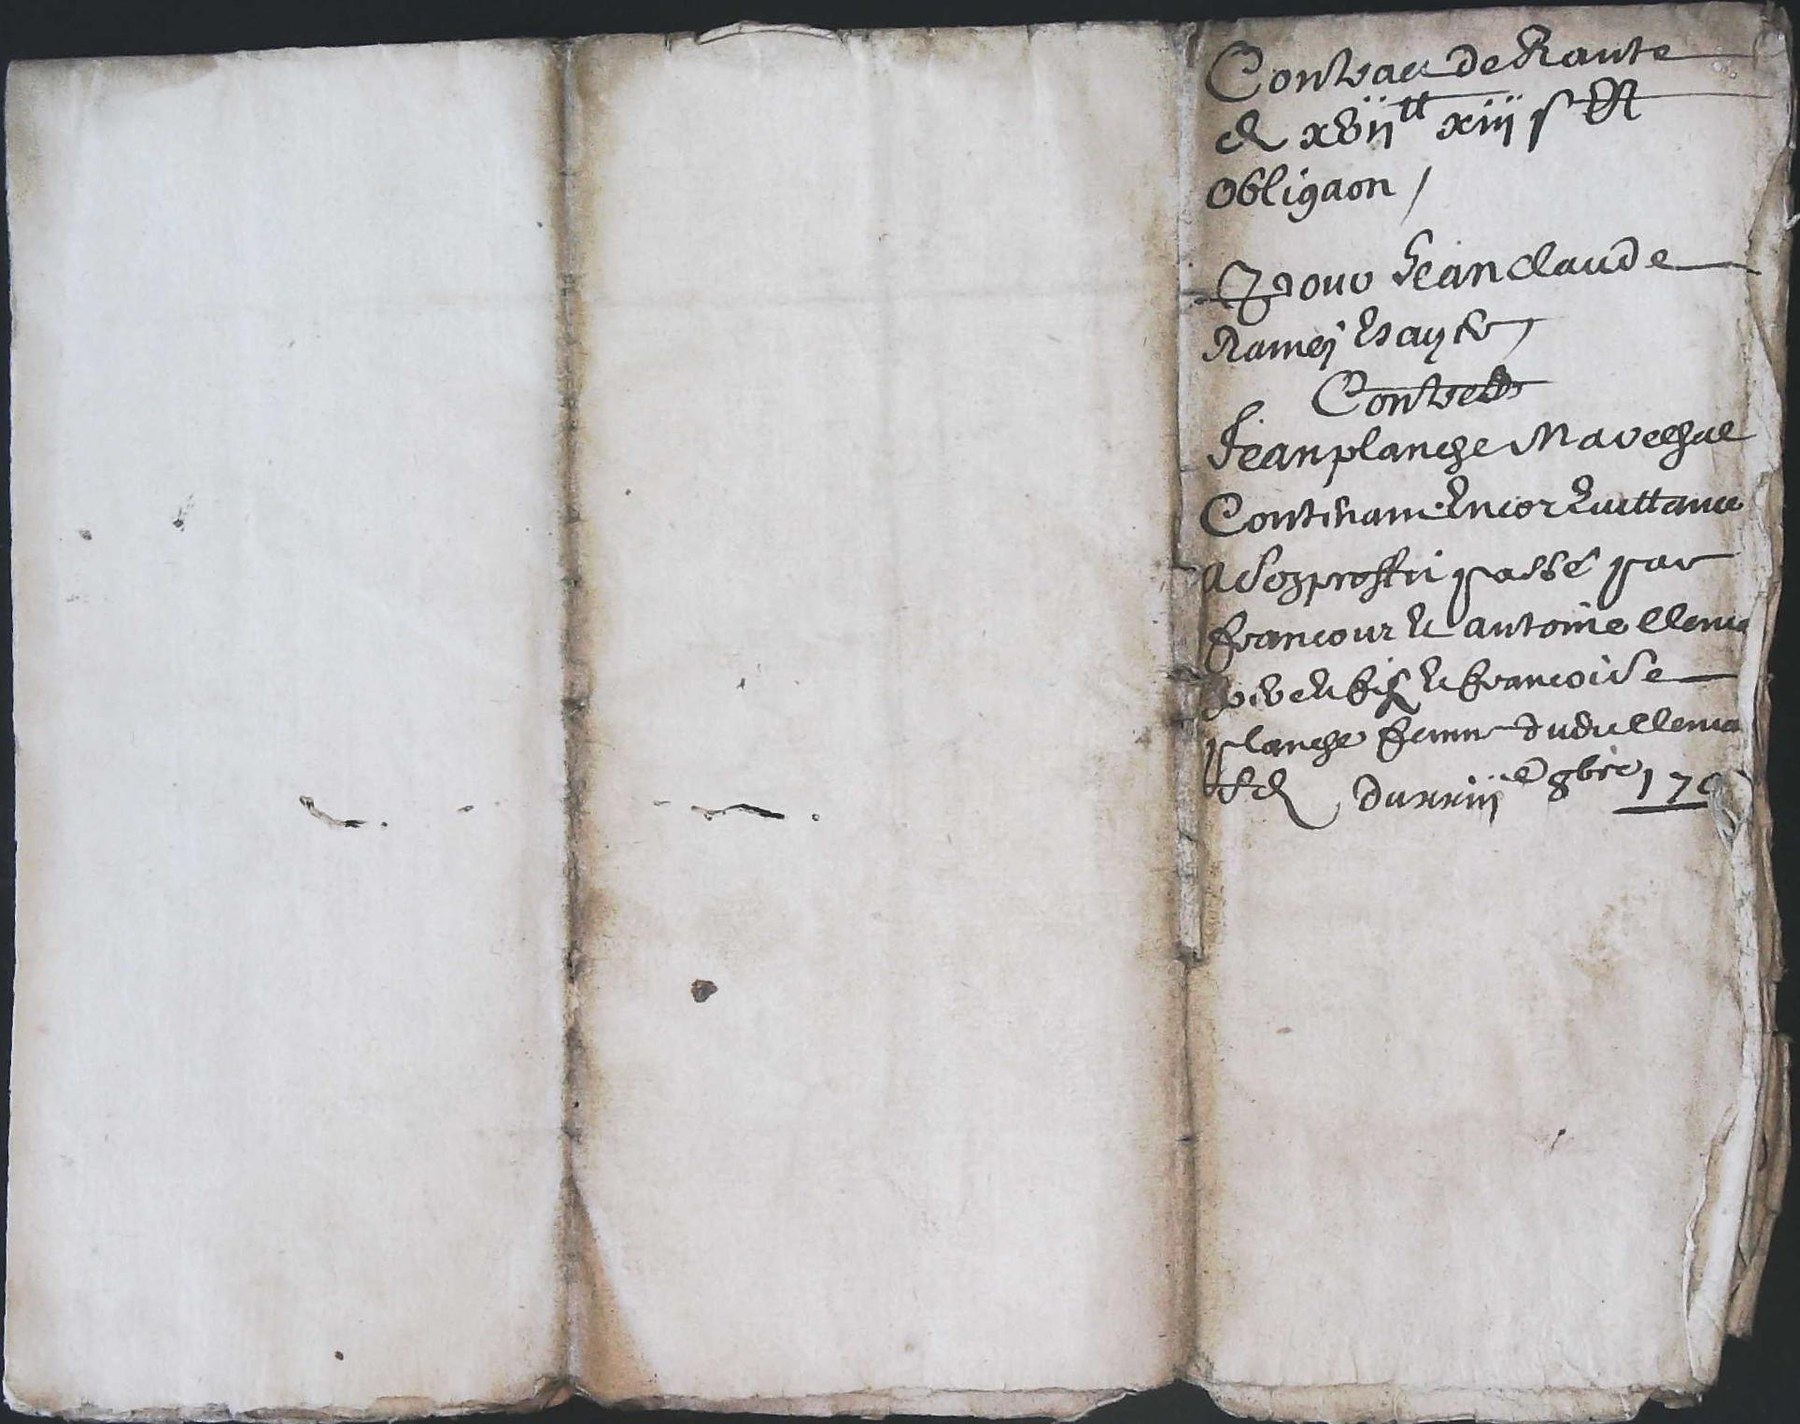 Contract de Rante
de xvii tt xiii s et
obligaon /
Pour Jean Claude
Ramey
Contre
Jean planche Mareschal
Contenant Encor quittance
a son proffit passé par
francour et antoine
pere et fils et francoise
planche femme dudict
du xxiii e 8bre 17